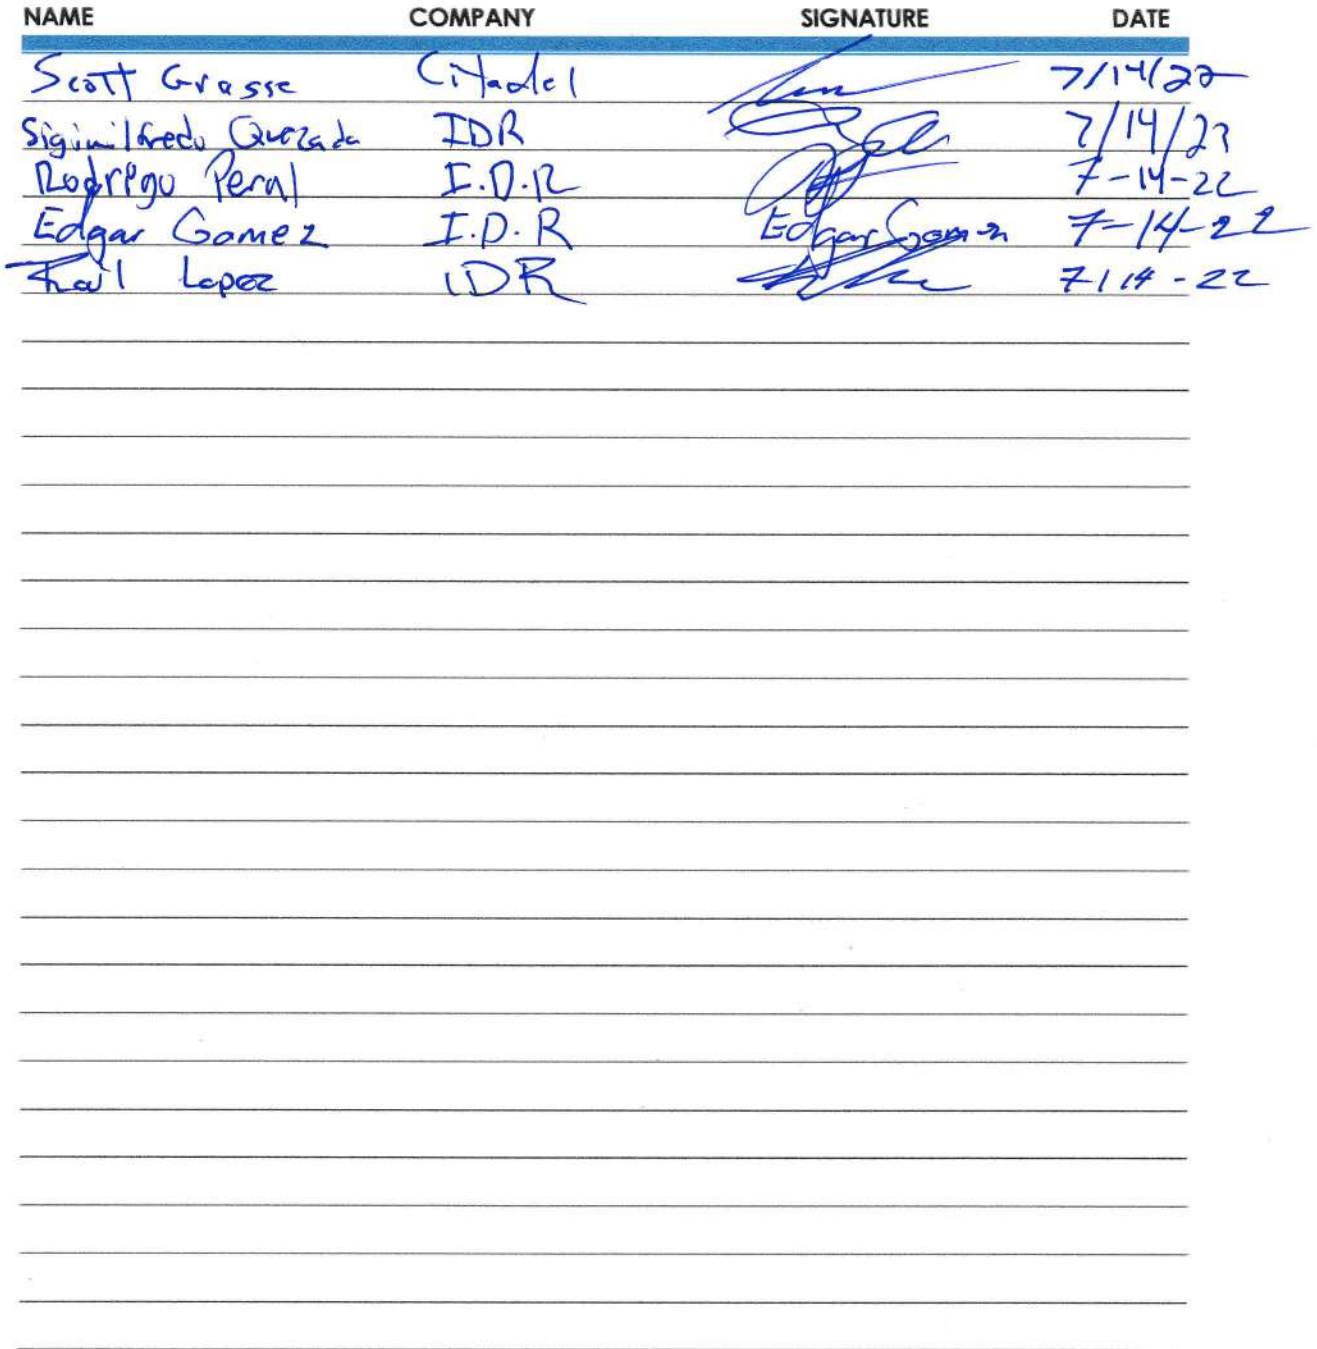 NAME COMPANY SIGNATURE DATE
Scott Grasse Citadel 7/14/22
Quezada IDR 7/14/23
Rodrigo Peral I.D.R 7-14-22
Edgar Gomez I.D.R Edgar Gomez 7-14-22
Lopez IDR 7/14-22